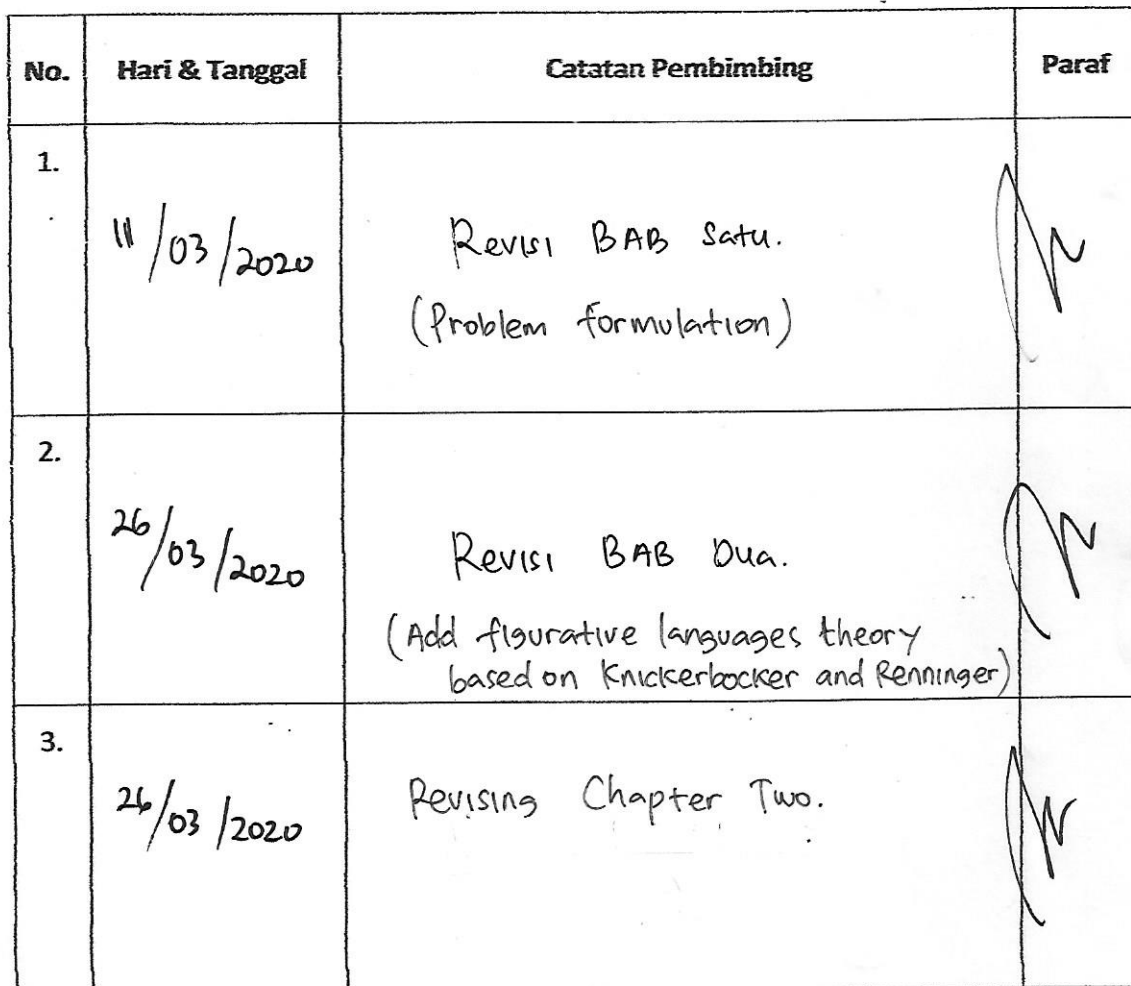 No. Hari & Tanggal Catatan Pembimbing Paraf
1.
11/03/2020 Revisi BAB Satu.
(Problem formulation)
2.
26/03/2020 Revisi BAB Dua.
(Add figurative languages theory
based on Knickerbocker and Renninger)
3.
26/03/2020 Revising Chapter Two.